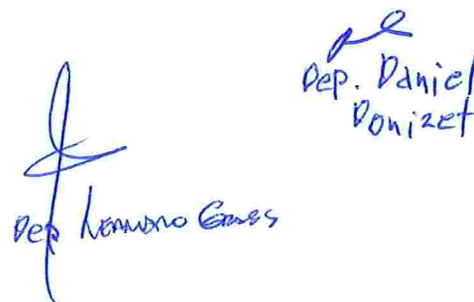 Dep. Daniel
Donizet
Dep Leandro Grass